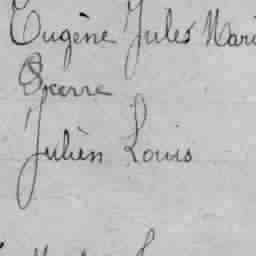 Eugène Jules Mari
Pierre
Julien Louis